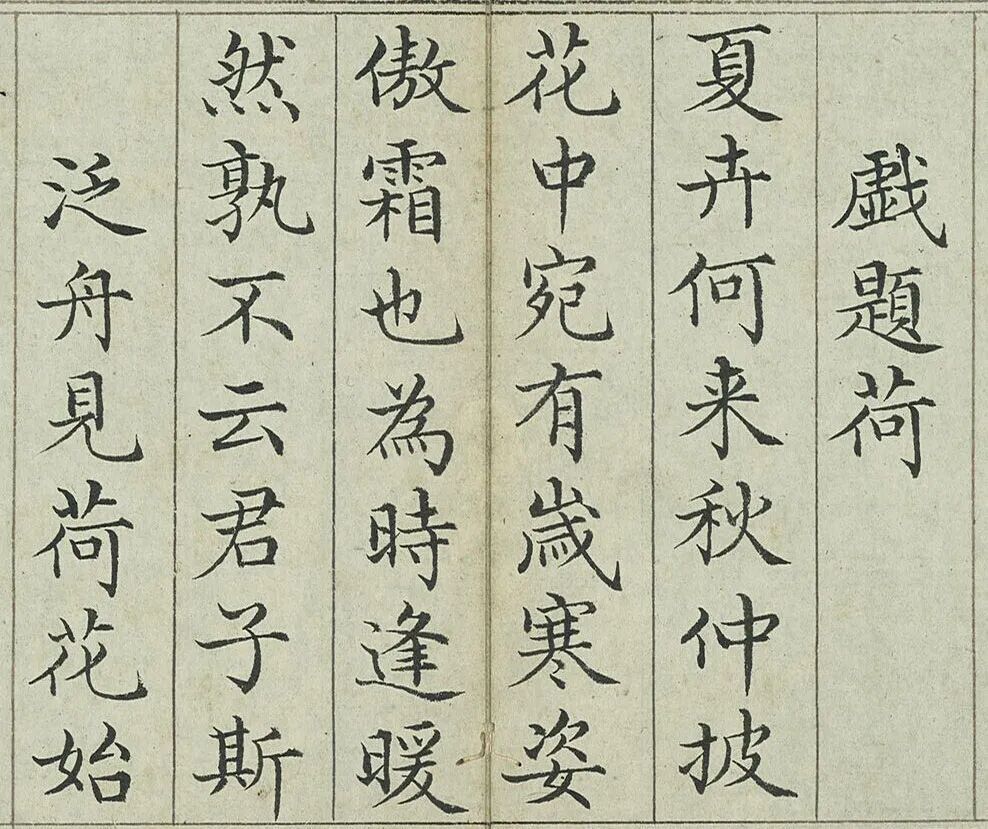 戯題荷
夏卉何来秋仲披
花中宛有歳寒姿
傲霜也為時逢暖
然孰不云君子斯
泛舟見荷花始